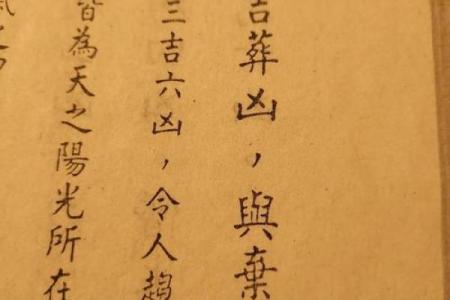 吉葬凶，與棄
三吉六凶，令人趨
皆為天之陽光所在